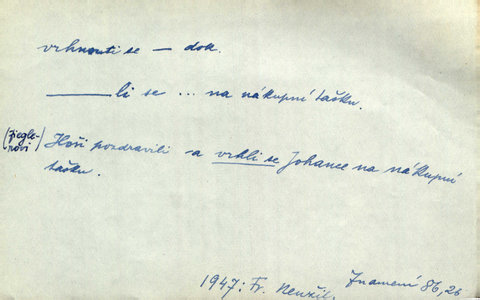 vrhnouti se — dok.
———li se ... na nákupní tašku.
(Zieglerovi) Hoši pozdravili a vrhli se Johance na nákupní
tašku.
1947: Fr. Neužil. Znamení 86, 26